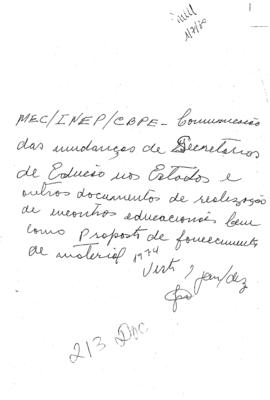 1
1/7/70
MEC/INEP/CBPE - Comunicação
das mudanças de Secretários
de Edução nos Estados e
outros documentos de realização
de encontros educacionais bem
como Proposta de fornecimento
de material 1974
jan/dez
213 Doc